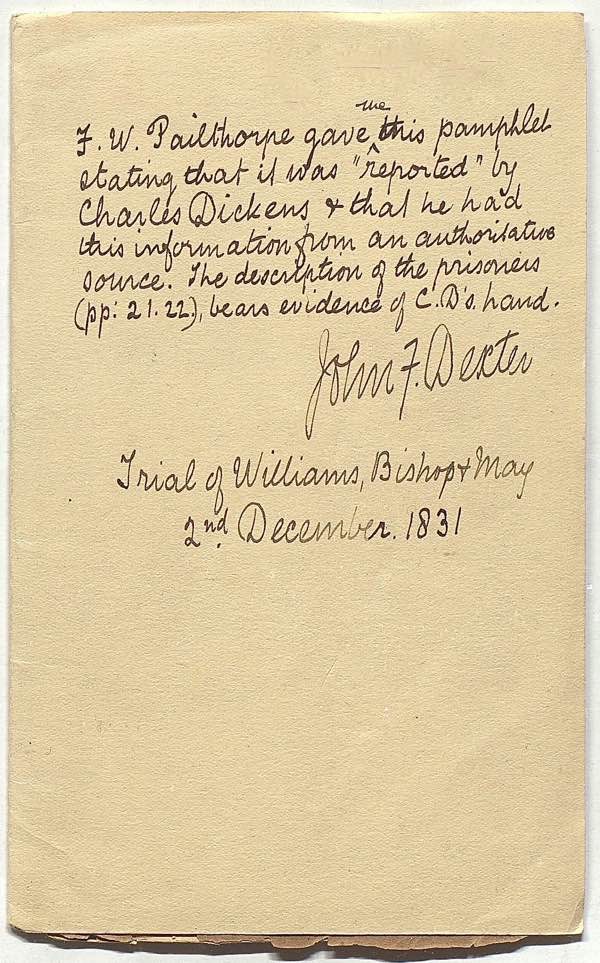 F. W. Pailthorpe gave me this pamphlet
stating that it was "reported" by
Charles Dickens & that he had
this information from an authoritative
source. The description of the prisoners
(pp: 21. 22.), bears evidence of C. D's. hand.
John F. Dexter
Trial of Williams, Bishop & May
2nd December. 1831